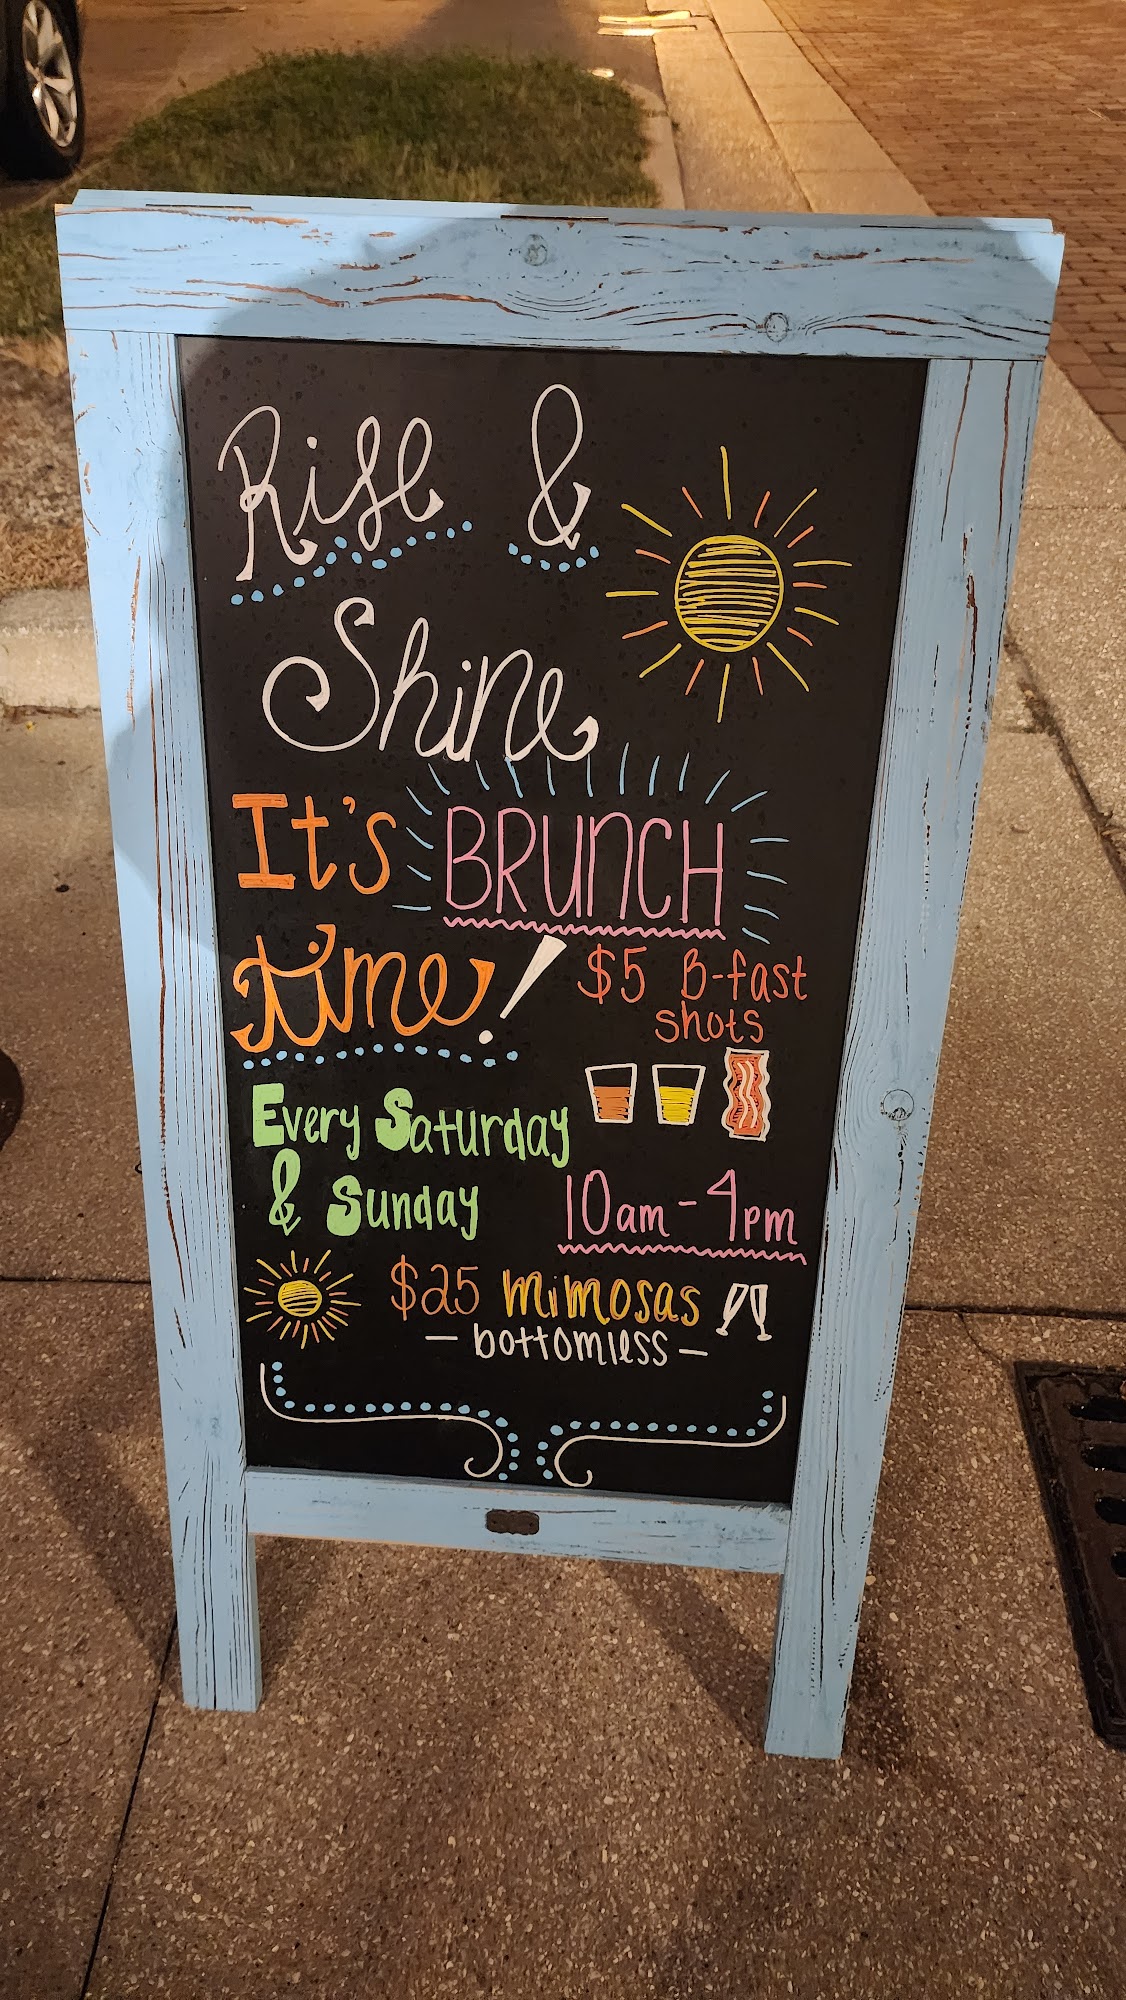 Rise &
Shine
It's BRUNCH
time!
$5 B-fast
shots
Every Saturday
& Sunday
10am - 4pm
$25 mimosas
- bottomless -